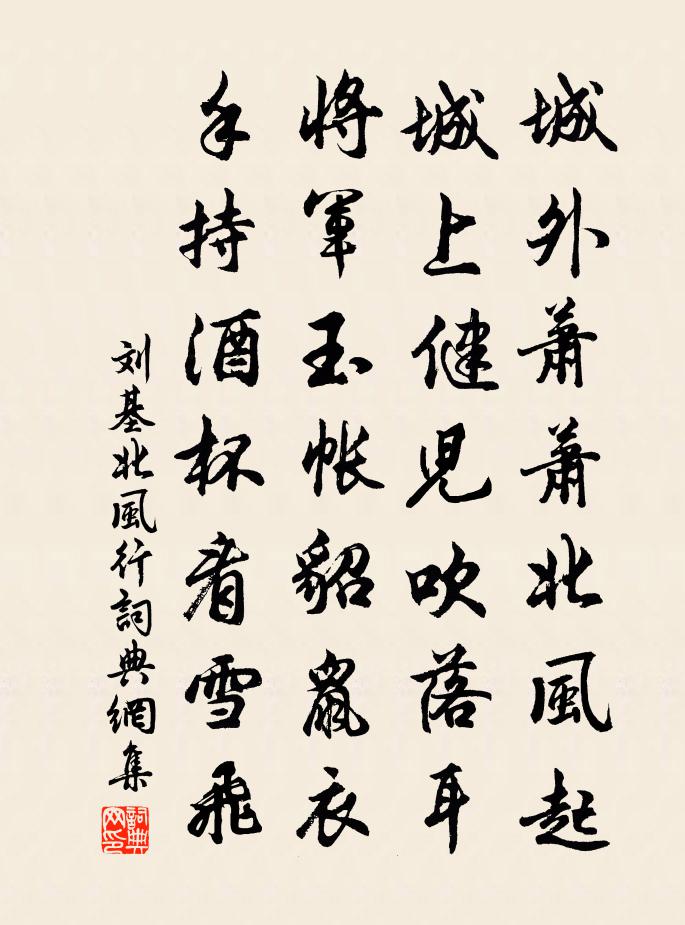 城外蕭蕭北風起
城上健児吹落耳
將軍玉帳貂鼠衣
手持酒杯看雪飛
刘基北風行詞典網集
詞典网印